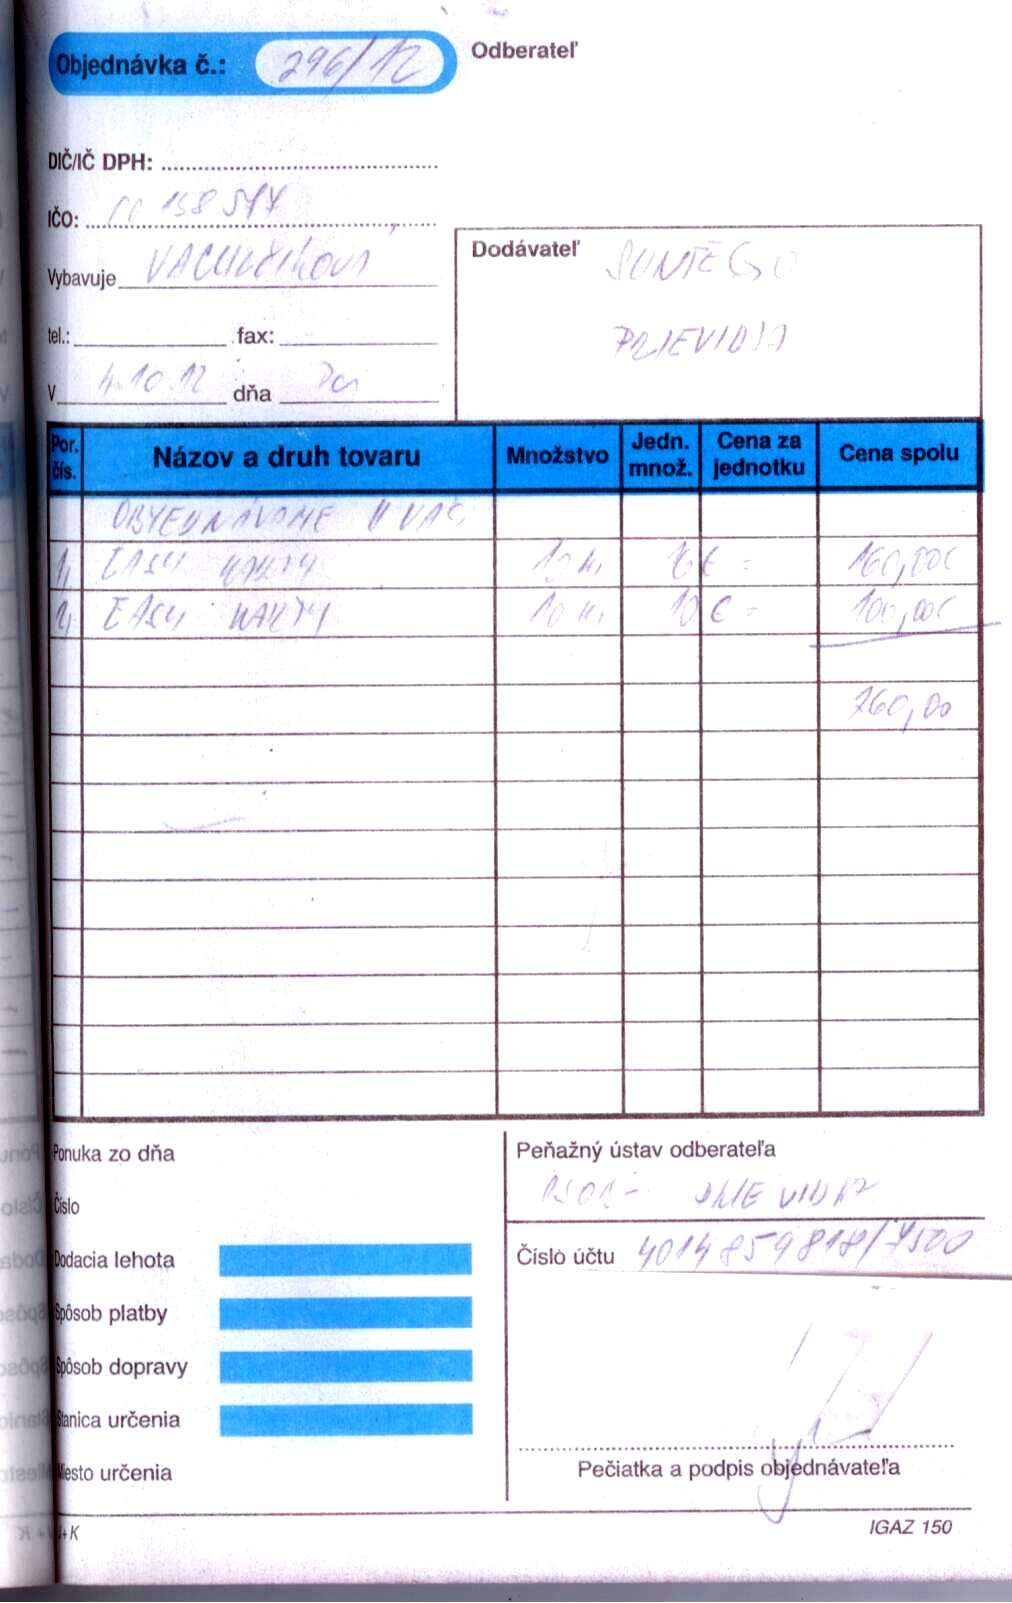 Objednávka č.: 296/12
Odberateľ
DIČ/IČ DPH:
IČO: 00 158 577
Vybavuje
tel.: fax:
V 4.10.12 dňa
Dodávateľ SUNTEGO
PRIEVIDZA
Por. čís. Názov a druh tovaru Množstvo Jedn. množ. Cena za jednotku Cena spolu
OBJEDNÁVAME U VÁS
1, EASY KARTY 10 16 € = 160,00€
2, EASY KARTY 10 10 € = 100,00€
260,00
Ponuka zo dňa
Číslo
Dodacia lehota
Spôsob platby
Spôsob dopravy
Stanica určenia
Miesto určenia
Peňažný ústav odberateľa
PRIEVIDZA
Číslo účtu 4014859818/7500
Pečiatka a podpis objednávateľa
IGAZ 150